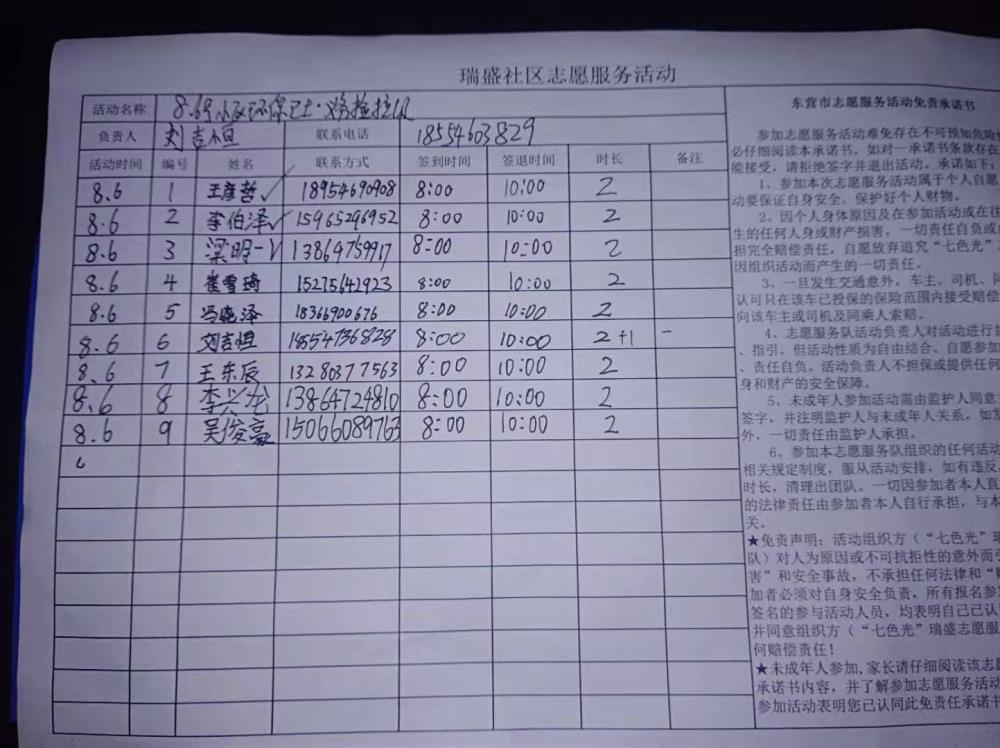 瑞盛社区志愿服务活动
活动名称 8.6 小区环保卫士·
负责人 刘吉恒 联系电话 18554603829
活动时间 编号 姓名 联系方式 签到时间 签退时间 时长 备注
8.6 1 王彦哲✓ 18954690908 8:00 10:00 2
8.6 2 李伯泽✓ 15965296952 8:00 10:00 2
8.6 3 梁明一✓ 13864759917 8:00 10:00 2
8.6 4 崔雪琦 15275642923 8:00 10:00 2
8.6 5 冯晓泽 18366900676 8:00 10:00 2
8.6 6 刘吉恒 18554736828 8:00 10:00 2+1 -
8.6 7 王东辰 13280377563 8:00 10:00 2
8.6 8 李兴龙 13864724810 8:00 10:00 2
8.6 9 吴俊豪 15066089763 8:00 10:00 2
东营市志愿服务活动免责承诺书
参加志愿服务活动难免存在不可预知危险性
必仔细阅读本承诺书。如对一承诺书条款存在
能接受,请拒绝签字并退出活动。承诺如下:
1、参加本次志愿服务活动属于个人自愿
动要保证自身安全,保护好个人财物。
2、因个人身体原因及在参加活动或在往
生的任何人身或财产损害,一切责任自负或
担完全赔偿责任,自愿放弃追究“七色光”
因组织活动而产生的一切责任。
3、一旦发生交通意外,车主、司机、同
认可只在该车已投保的保险范围内接受赔偿
向该车主或司机及同乘人索赔。
4、志愿服务队活动负责人对活动进行
、指引,但活动性质为自由结合、自愿参加
、责任自负。活动负责人不担保或提供任何
身和财产的安全保障。
5、未成年人参加活动需由监护人同意
签字,并注明监护人与未成年人关系,如
外,一切责任由监护人承担。
6、参加本志愿服务队组织的任何活动
相关规定制度,服从活动安排,如有违反
时长,清理出团队。一切因参加者本人直
的法律责任由参加者本人自行承担,与本
关。
★免责声明:活动组织方(“七色光”瑞
队)对人为原因或不可抗拒性的意外而引
害”和安全事故,不承担任何法律和“
加者必须对自身安全负责,所有报名参
签名的参与活动人员,均表明自己已认
并同意组织方(“七色光”瑞盛志愿服
何赔偿责任!
★未成年人参加,家长请仔细阅读该志愿
承诺书内容,并了解参加志愿服务活动
参加活动表明您已认同此免责任承诺书